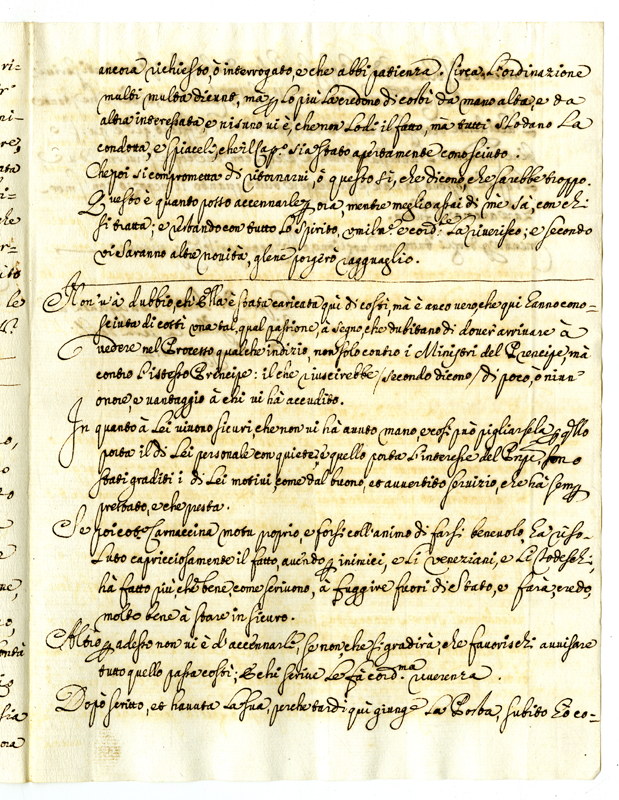 ancora richiesto, ò interrogato, e che abbi patienza. Circa L'ordinazione
multi multa dicunt, mà p lo più la credono di costì da mano alta, e da
altra interessata, e nisuno vi è, che non Lodi il fatto, mà tutti Lodano La
condotta, e spiaceli, che il Cap.º sia stato apertamente conosciuto.
Che poi si comprometta di ritornarvi, ò questo sì, che dicono, che sarebbe troppo.
Questo è quanto posso accennarle p ora, mentre meglio assai di mè sà, con chi
si tratta; e restando con tutto Lo spirito, La riverisco; e secondo
vi saranno altre novità, gliene porgerò ragguaglio.
Non v'à dubbio, ch è stata caricata quì di costì, mà è anco vero, che quì hanno cono=
sciuta di costì una tal qual passione, à segno, che dubitano di dover arrivare à
vedere nel Processo qualche indizio, non solo contro i Ministri del Prencipe, mà
contro L'istesso Prencipe: il che riuscirebbe /secondo dicono/ di poco, ò niun'
onore, e vantaggio à chi vi hà accudito.
In quanto à Lei vivono sicuri, che non vi hà avuto mano, e così può pigliarsela p qllo
porta il di Lei personale con quiete, e quello porta L'interesse del sono
stati graditi i di Lei motivi, come dal buono, et avvertito servizio, che hà semp
prestato, e che presta.
Se poi cote Carnaccina motu proprio, e forsi coll'animo di farsi benevolo, hà riso=
luto capricciosamente il fatto, avendo p inimici, e Li Veneziani, e Li Todeschi,
hà fatto più che bene, come scrivono, à fuggire fuori di Stato, e farà, credo,
molto bene à stare in sicuro.
Altro p adesso non vi è d'accennarle, se non che si gradirà, che favorischi avvisare
tutto quello passa costì; e chi scrive Le fà cord.ma riverenza.
Dopò scritto, et havuta La sua, perche tardi quì giunge La Posta, subito hò co=